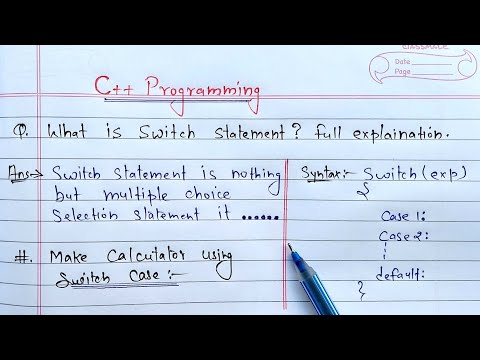 CLASSMATE
Date
Page
C++ Programming
Q. What is Switch Statement? full explaination.
Ans→ Switch statement is nothing
but multiple choice
Selection statement it ......
#. Make Calculator using
Switch Case :-
Syntax:- Switch (exp)
{
Case 1:
Case 2:
default:
}